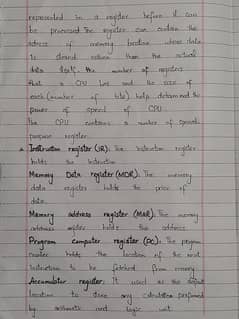 represented in a register before it can
be processed the register can contain the
adress of memory location whose data
is stored rather than the actual
data itself. the number of registers
that a CPU has and the size of
each (number of bits) help determined the
power of speed of CPU.
the CPU contains a number of special
purpose register.
Instruction register (IR): The instruction register
holds the instruction
Memory Data register (MDR): The memory
data register holds the price of
data.
Memory address register (MAR): The memory
address register holds the address
Program computer register (PC): The program
counter holds the location of the next
instruction to be fetched from memory
Accumulator register: It used as the default
location to store any calculation performed
by arithmetic and logic unit